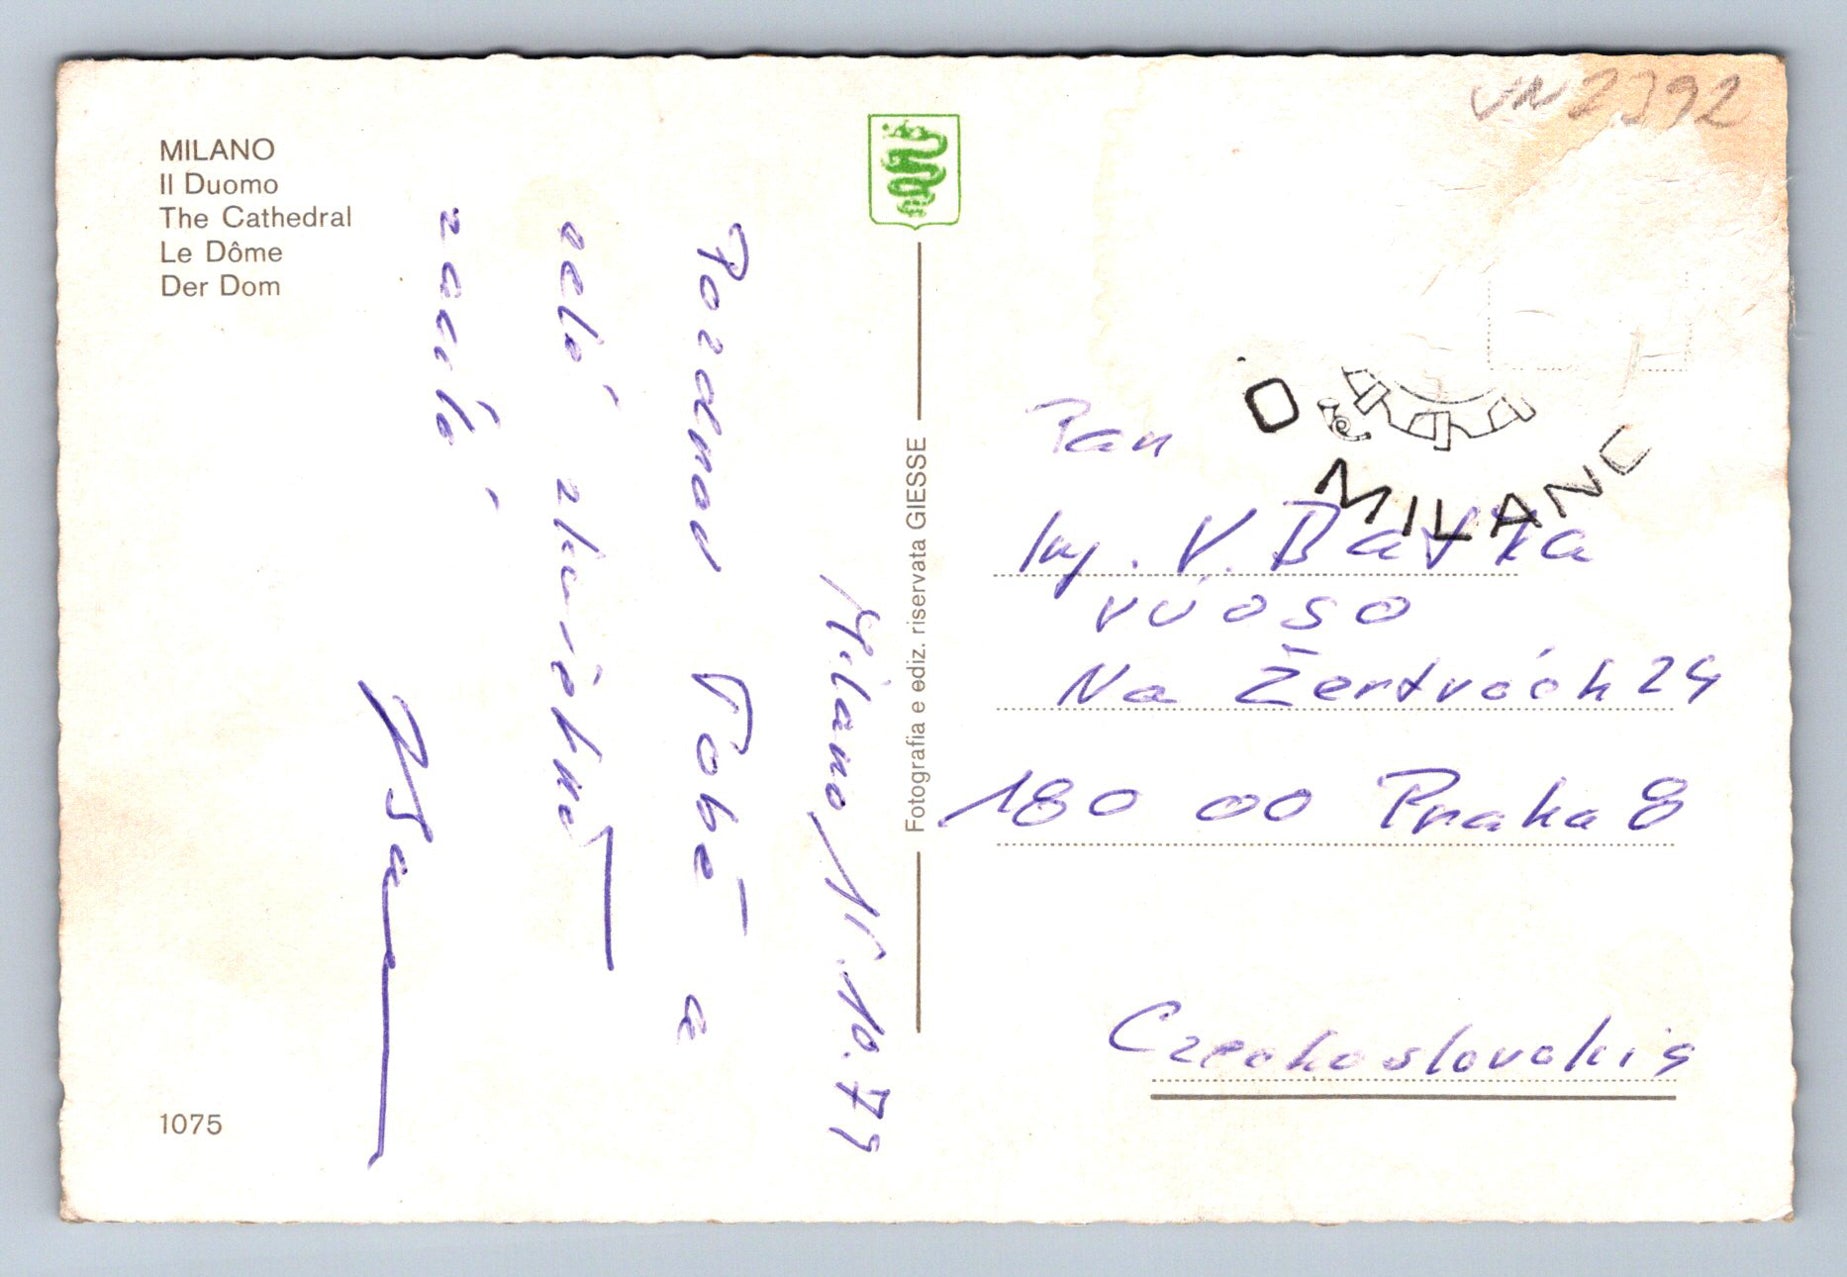 MILANO
Il Duomo
The Cathedral
Le Dôme
Der Dom
1075
Milano, 15.10.79
Pozdrav Tobě a
celé
zasílá
Fotografia e ediz. riservata GIESSE
MILANO
Pan
Ing. V. Batka
VÚOSO
Na Žertvách 24
180 00 Praha 8
Czechoslovakia